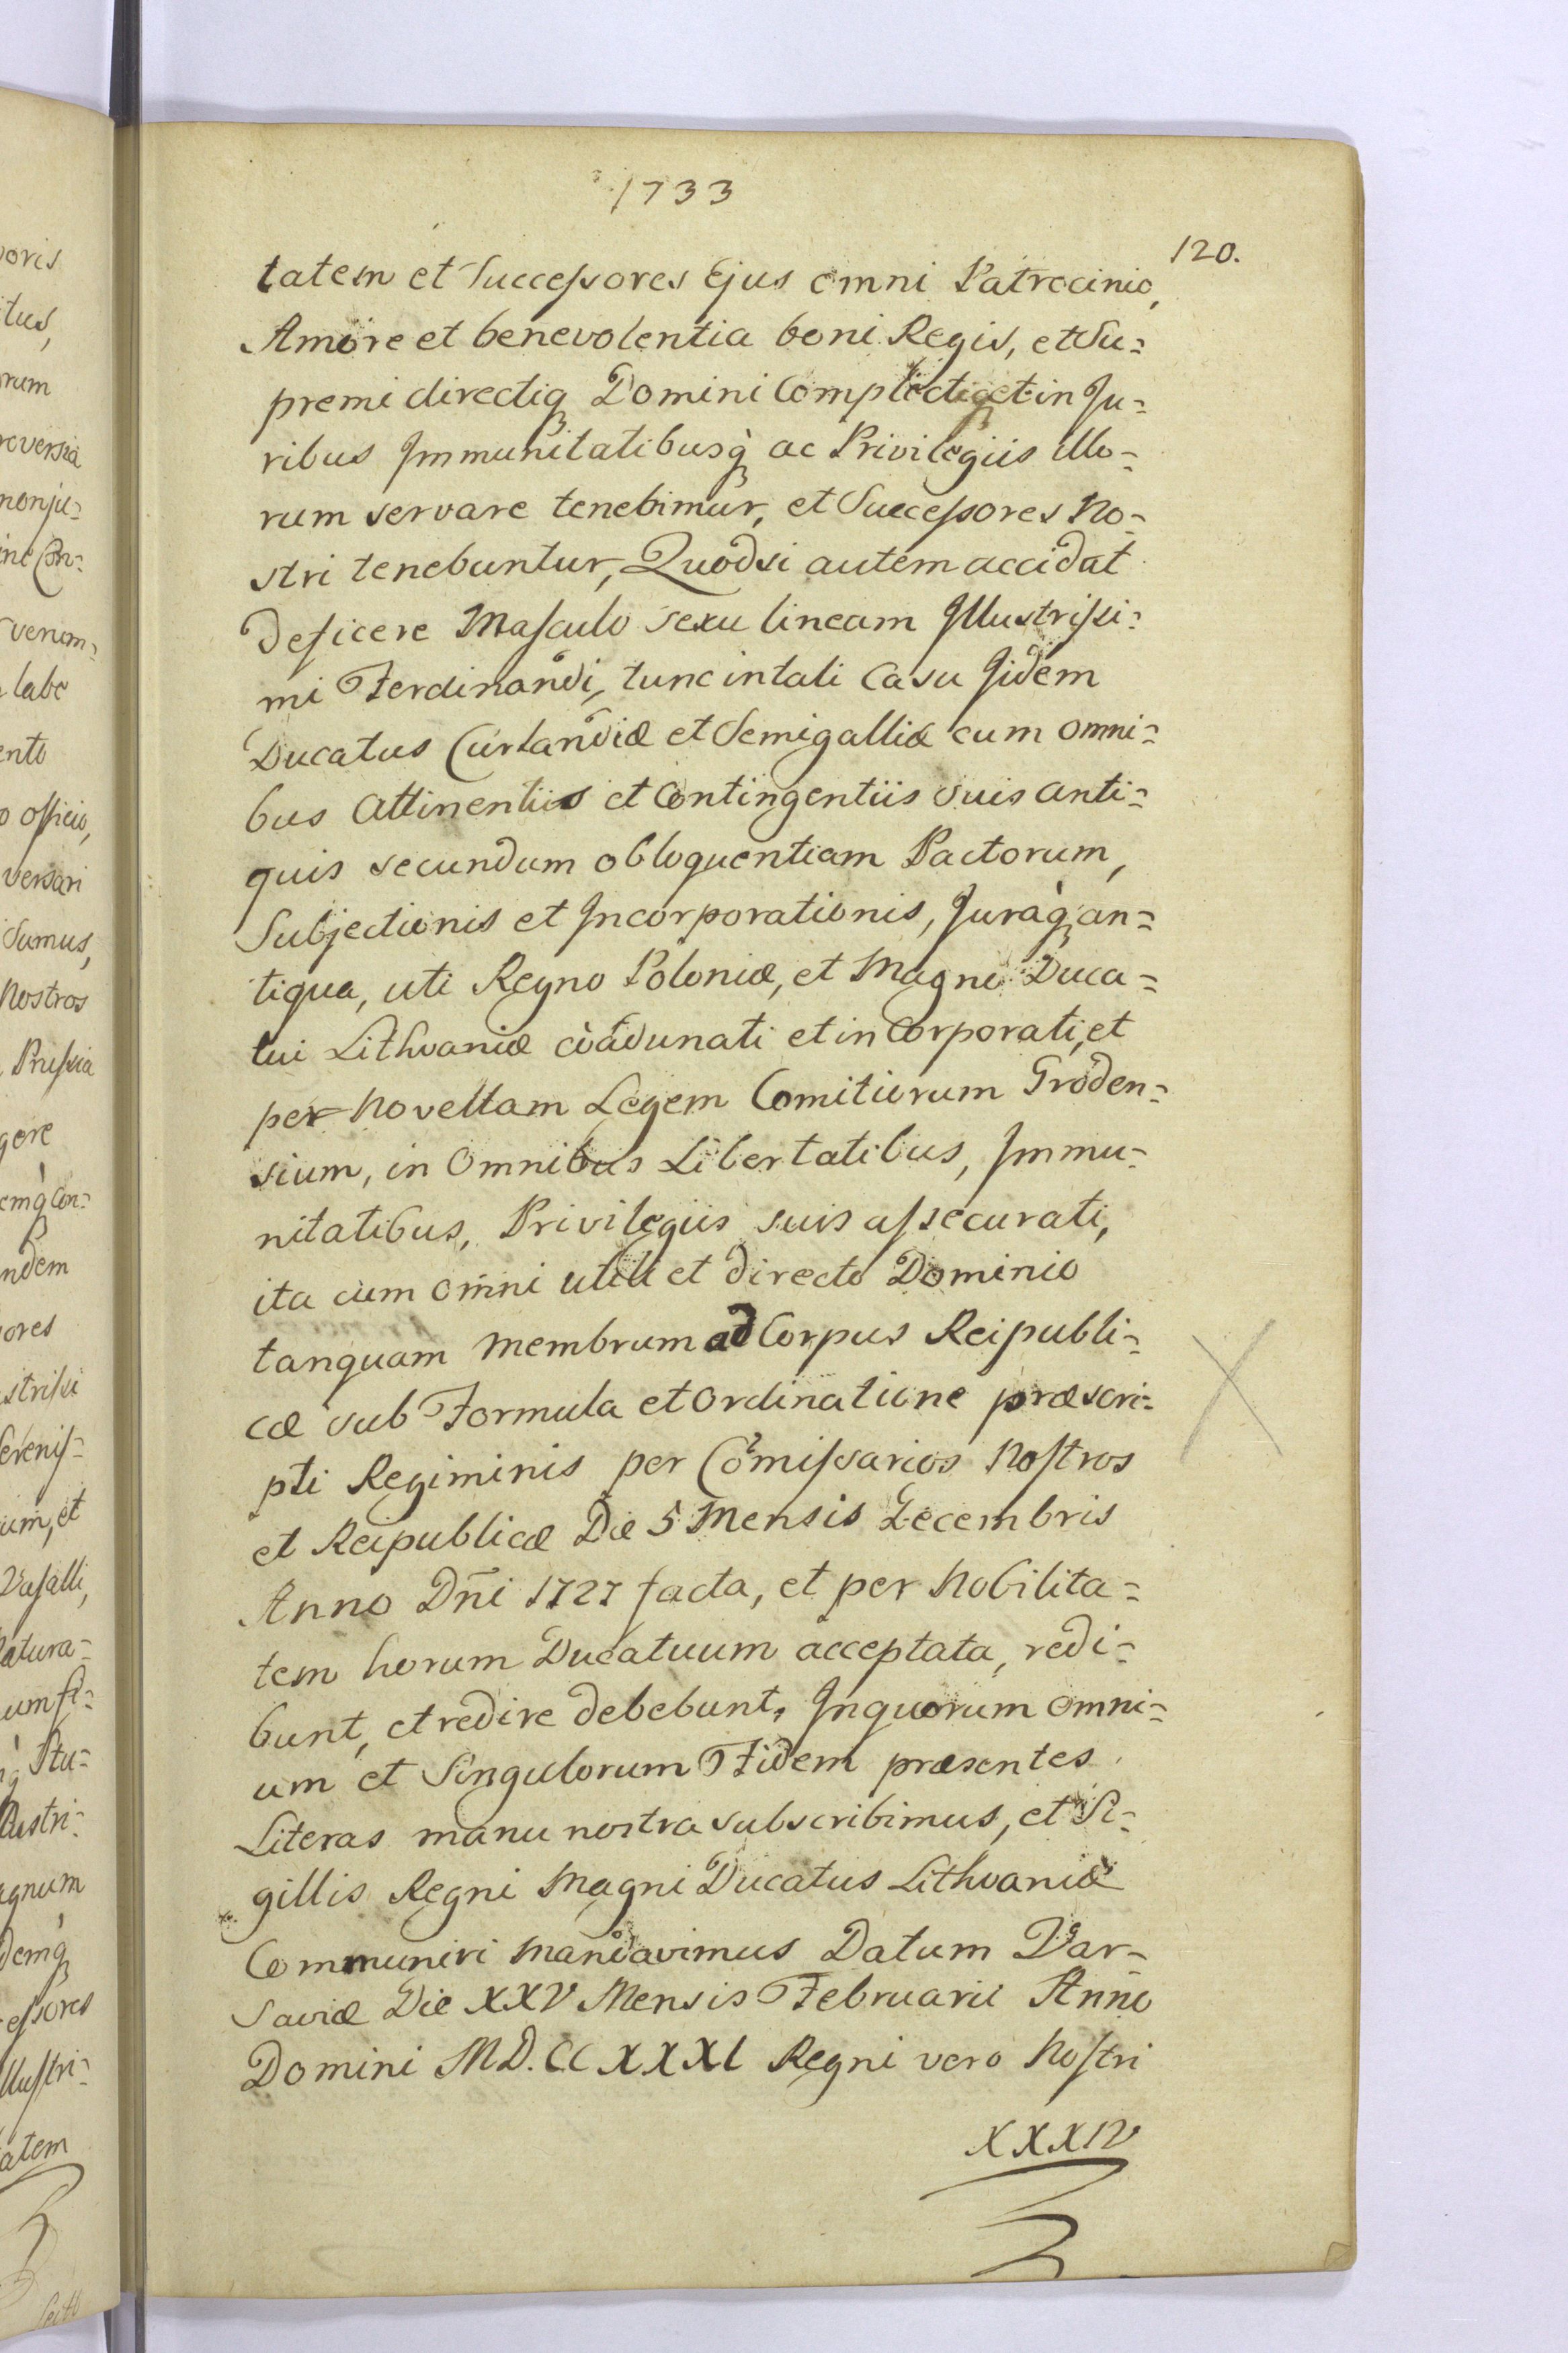 1733
120.
tatem et Successores Ejus omni Patrocinio,
Amore et benevolentia boni Regis, et Su=
premi directiq Domini Complectiq et in Ju=
ribus Immunitatibusq ac Privilegiis illo=
rum servare tenebimur, et Successores No=
stri tenebuntur, Quodsi autem accidat
deficere Masculo sexu lineam Illustrissi=
mi Ferdinandi, tunc in tali Casu Iidem
Ducatus Curlandiæ et Semigalliæ cum omni=
bus attinentiis et Contingentiis suis anti=
quis secundum obloquentiam Pactorum,
Subjectionis et Incorporationis, Juraq an=
tiqua, uti Regno Poloniæ, et Magno Duca=
tui Lithvaniæ coadunati et in Corporati, et
per Novellam Legem Comitiorum Groden=
sium, in omnibus Libertatibus, Immu=
nitatibus, Privilegiis suis assecurati,
ita cum omni utili et directo Dominio
tanquam membrum ad Corpus Reipubli=
cæ sub Formula et Ordinatione præscri=
pti Regiminis per Comissarios Nostros
et Reipublicæ Die 5 Mensis Decembris
Anno Dni 1727 facta, et per Nobilita=
tem horum Ducatuum acceptata, redi=
bunt, et redire debebunt, In quorum omni=
um et Singulorum Fidem præsentes
Literas manu nostra subscribimus, et Si=
gillis Regni Magni Ducatus Lithvaniæ
Communiri mandavimus Datum Var=
saviæ Die XXV Mensis Februarii Anno
Domini MD.CCXXXI Regni vero Nostri
XXXIV